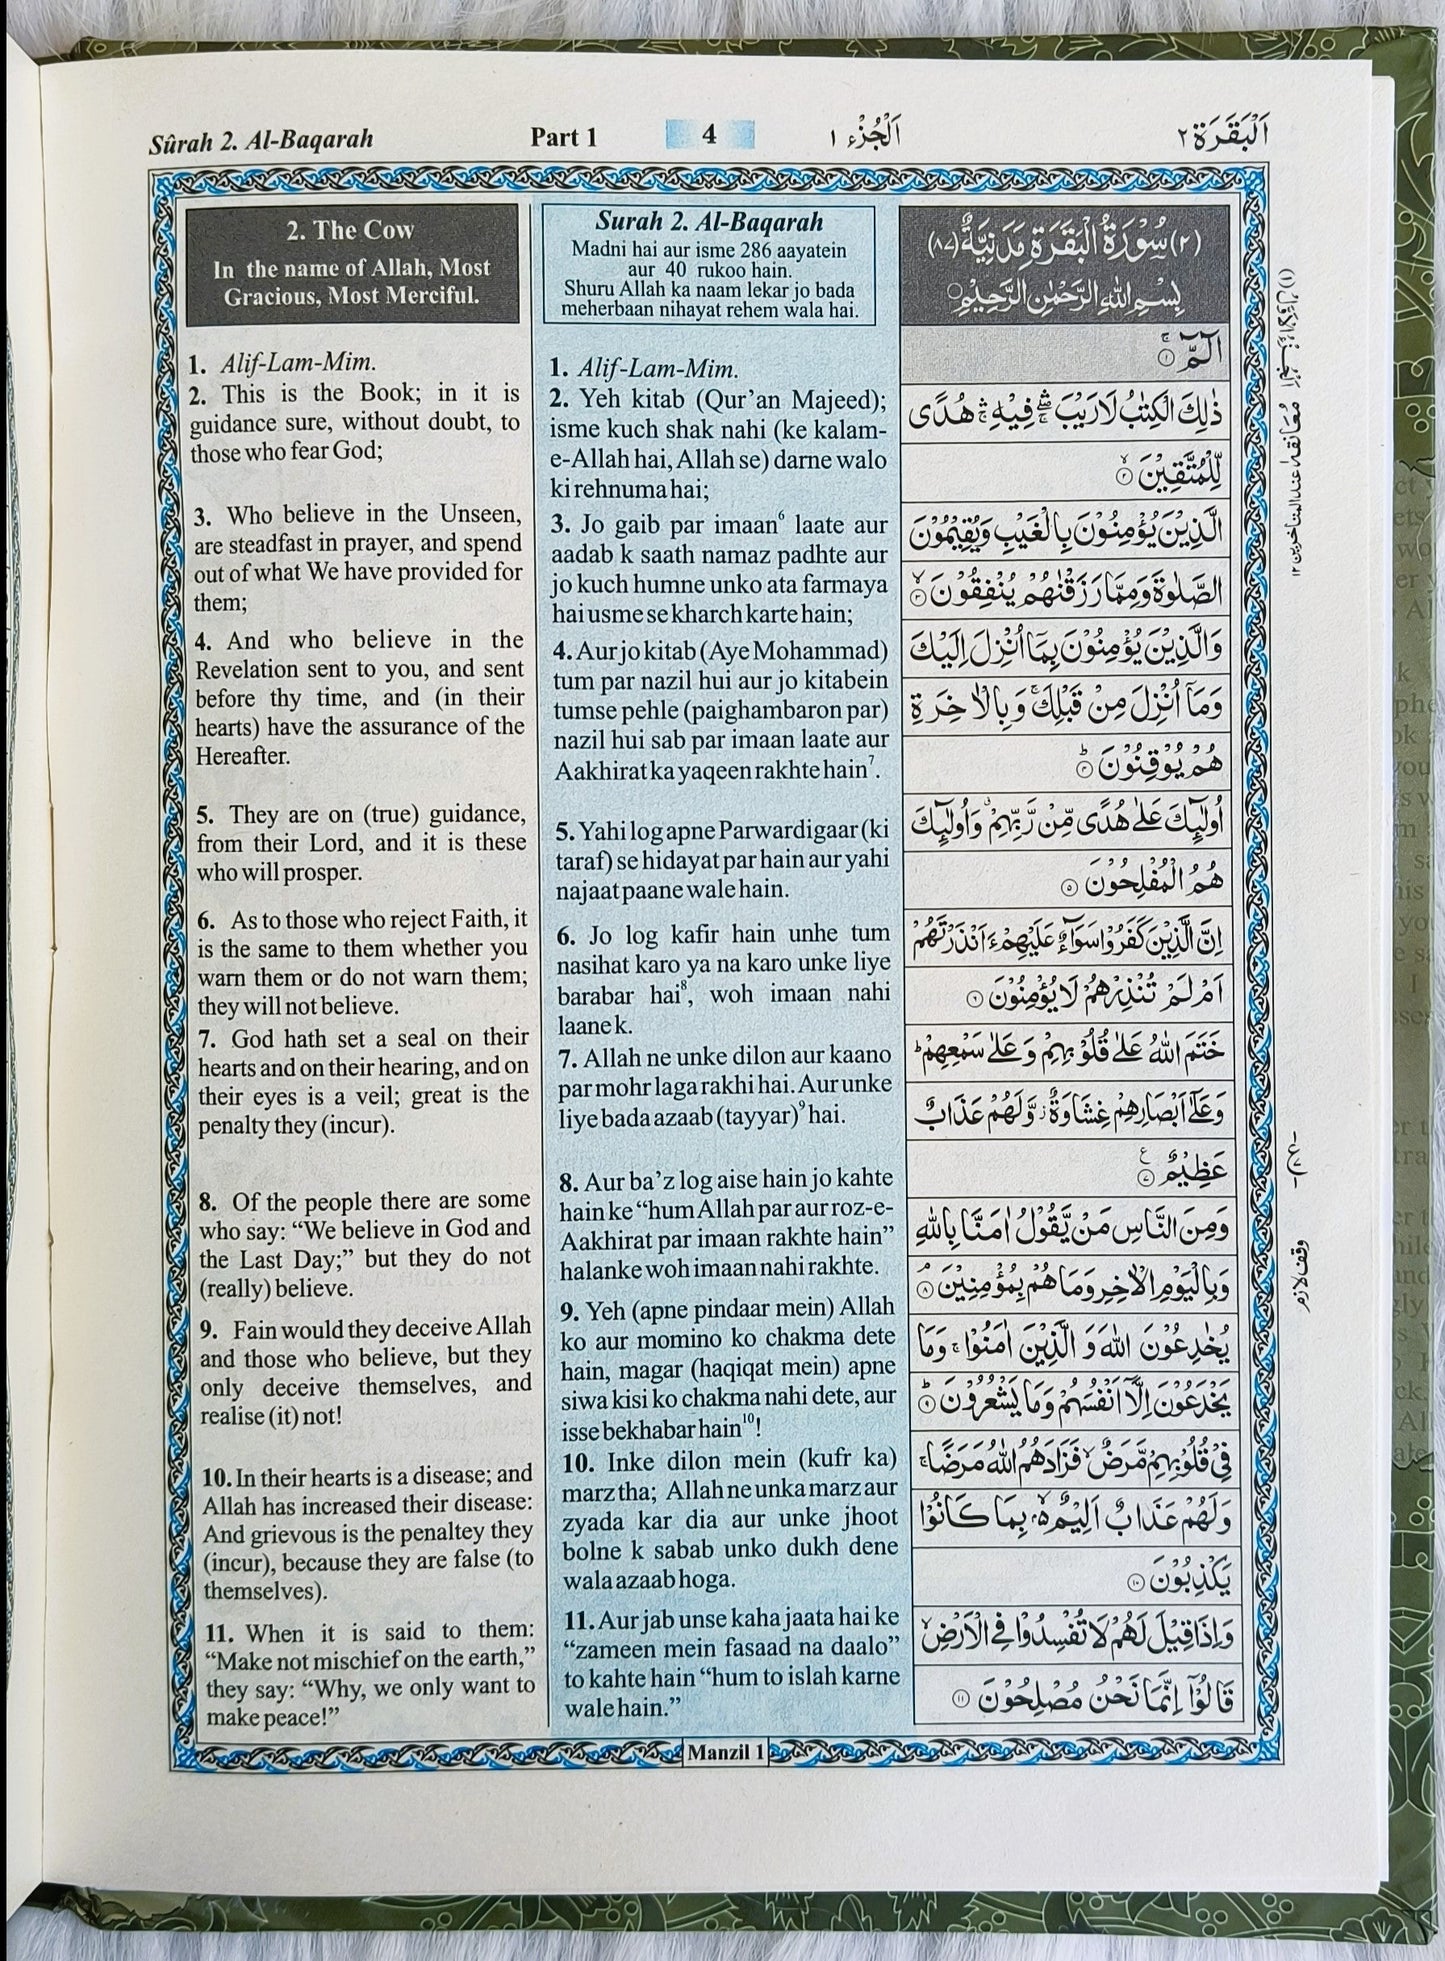 Sûrah 2. Al-Baqarah
Part 1
4
اَلْجُزْء ١
اَلْبَقَرَة ٢
2. The Cow
In the name of Allah, Most
Gracious, Most Merciful.
1. Alif-Lam-Mim.
2. This is the Book; in it is
guidance sure, without doubt, to
those who fear God;
3. Who believe in the Unseen,
are steadfast in prayer, and spend
out of what We have provided for
them;
4. And who believe in the
Revelation sent to you, and sent
before thy time, and (in their
hearts) have the assurance of the
Hereafter.
5. They are on (true) guidance,
from their Lord, and it is these
who will prosper.
6. As to those who reject Faith, it
is the same to them whether you
warn them or do not warn them;
they will not believe.
7. God hath set a seal on their
hearts and on their hearing, and on
their eyes is a veil; great is the
penalty they (incur).
8. Of the people there are some
who say: “We believe in God and
the Last Day;” but they do not
(really) believe.
9. Fain would they deceive Allah
and those who believe, but they
only deceive themselves, and
realise (it) not!
10. In their hearts is a disease; and
Allah has increased their disease:
And grievous is the penaltey they
(incur), because they are false (to
themselves).
11. When it is said to them:
“Make not mischief on the earth,”
they say: “Why, we only want to
make peace!”
Surah 2. Al-Baqarah
Madni hai aur isme 286 aayatein
aur 40 rukoo hain.
Shuru Allah ka naam lekar jo bada
meherbaan nihayat rehem wala hai.
1. Alif-Lam-Mim.
2. Yeh kitab (Qur’an Majeed);
isme kuch shak nahi (ke kalam-
e-Allah hai, Allah se) darne walo
ki rehnuma hai;
3. Jo gaib par imaan6 laate aur
aadab k saath namaz padhte aur
jo kuch humne unko ata farmaya
hai usme se kharch karte hain;
4. Aur jo kitab (Aye Mohammad)
tum par nazil hui aur jo kitabein
tumse pehle (paighambaron par)
nazil hui sab par imaan laate aur
Aakhirat ka yaqeen rakhte hain7.
5. Yahi log apne Parwardigaar (ki
taraf) se hidayat par hain aur yahi
najaat paane wale hain.
6. Jo log kafir hain unhe tum
nasihat karo ya na karo unke liye
barabar hai8, woh imaan nahi
laane k.
7. Allah ne unke dilon aur kaano
par mohr laga rakhi hai. Aur unke
liye bada azaab (tayyar)9 hai.
8. Aur ba’z log aise hain jo kahte
hain ke “hum Allah par aur roz-e-
Aakhirat par imaan rakhte hain”
halanke woh imaan nahi rakhte.
9. Yeh (apne pindaar mein) Allah
ko aur momino ko chakma dete
hain, magar (haqiqat mein) apne
siwa kisi ko chakma nahi dete, aur
isse bekhabar hain10!
10. Inke dilon mein (kufr ka)
marz tha; Allah ne unka marz aur
zyada kar dia aur unke jhoot
bolne k sabab unko dukh dene
wala azaab hoga.
11. Aur jab unse kaha jaata hai ke
“zameen mein fasaad na daalo”
to kahte hain “hum to islah karne
wale hain.”
(٢) سُوْرَةُ الْبَقَرَةِ مَدَنِيَّةٌ (٨٧)
بِسْمِ اللّٰهِ الرَّحْمٰنِ الرَّحِيْمِ
الٓمّٓ ۚ ١
ذٰلِكَ الْكِتٰبُ لَا رَيْبَ ۛ فِيْهِ ۛ هُدًى
لِّلْمُتَّقِيْنَ ۙ ٢
الَّذِيْنَ يُؤْمِنُوْنَ بِالْغَيْبِ وَيُقِيْمُوْنَ
الصَّلٰوةَ وَمِمَّا رَزَقْنٰهُمْ يُنْفِقُوْنَ ۙ ٣
وَالَّذِيْنَ يُؤْمِنُوْنَ بِمَآ اُنْزِلَ اِلَيْكَ
وَمَآ اُنْزِلَ مِنْ قَبْلِكَ ۚ وَبِالْاٰخِرَةِ
هُمْ يُوْقِنُوْنَ ؕ ٤
اُولٰٓئِكَ عَلٰى هُدًى مِّنْ رَّبِّهِمْ ۗ وَاُولٰٓئِكَ
هُمُ الْمُفْلِحُوْنَ ٥
اِنَّ الَّذِيْنَ كَفَرُوْا سَوَآءٌ عَلَيْهِمْ ءَاَنْذَرْتَهُمْ
اَمْ لَمْ تُنْذِرْهُمْ لَا يُؤْمِنُوْنَ ٦
خَتَمَ اللّٰهُ عَلٰى قُلُوْبِهِمْ وَعَلٰى سَمْعِهِمْ ؕ
وَعَلٰٓى اَبْصَارِهِمْ غِشَاوَةٌ ۫ وَّلَهُمْ عَذَابٌ
عَظِيْمٌ ٧
وَمِنَ النَّاسِ مَنْ يَّقُوْلُ اٰمَنَّا بِاللّٰهِ
وَبِالْيَوْمِ الْاٰخِرِ وَمَا هُمْ بِمُؤْمِنِيْنَ ۘ ٨
يُخٰدِعُوْنَ اللّٰهَ وَالَّذِيْنَ اٰمَنُوْا ۚ وَمَا
يَخْدَعُوْنَ اِلَّآ اَنْفُسَهُمْ وَمَا يَشْعُرُوْنَ ؕ ٩
فِيْ قُلُوْبِهِمْ مَّرَضٌ ۙ فَزَادَهُمُ اللّٰهُ مَرَضًا ۚ
وَلَهُمْ عَذَابٌ اَلِيْمٌ ۢ ۙ بِمَا كَانُوْا
يَكْذِبُوْنَ ١٠
وَاِذَا قِيْلَ لَهُمْ لَا تُفْسِدُوْا فِي الْاَرْضِ ۙ
قَالُوْٓا اِنَّمَا نَحْنُ مُصْلِحُوْنَ ١١
معانقه عند المتاخرين ١٢
وقف لازم
Manzil 1